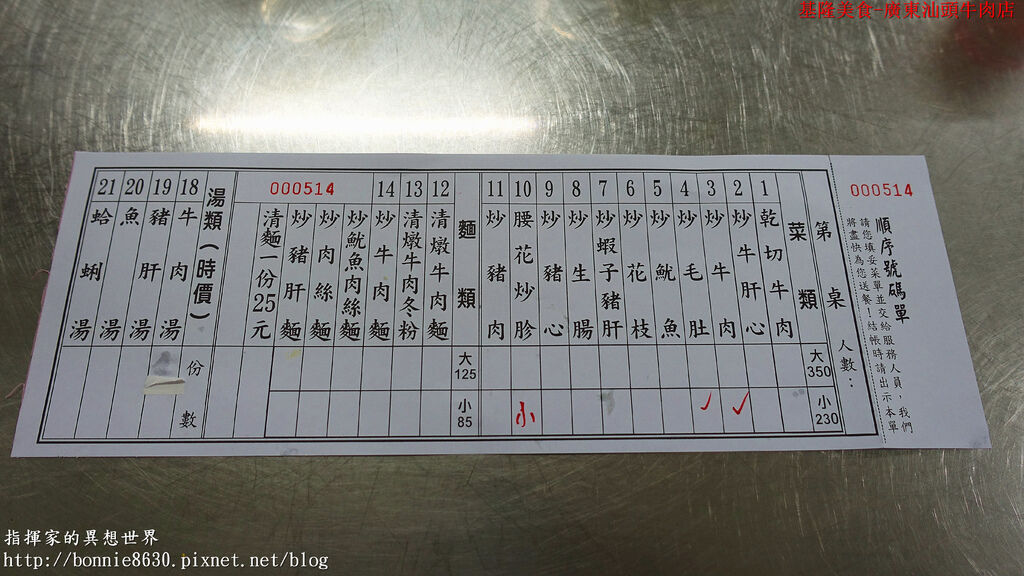 基隆美食-廣東汕頭牛肉店
000514
順序號碼單
請您填妥菜單並交給服務人員，我們
將盡快為您送餐！結帳時請出示本單
第 桌 人數：
菜類 大350 小230
1 乾切牛肉
2 炒牛肝心
3 炒牛肉
4 炒毛肚
5 炒魷魚
6 炒花枝
7 炒蝦子豬肝
8 炒生腸
9 炒豬心
10 腰花炒胗 小
11 炒豬肉
麵類 大125 小85
12 清燉牛肉麵
13 清燉牛肉冬粉
14 炒牛肉麵
000514
炒魷魚肉絲麵
炒肉絲麵
炒豬肝麵
清麵一份25元
湯類（時價） 份數
18 牛肉湯
19 豬肝湯
20 魚湯
21 蛤蜊湯
指揮家的異想世界
http://bonnie8630.pixnet.net/blog